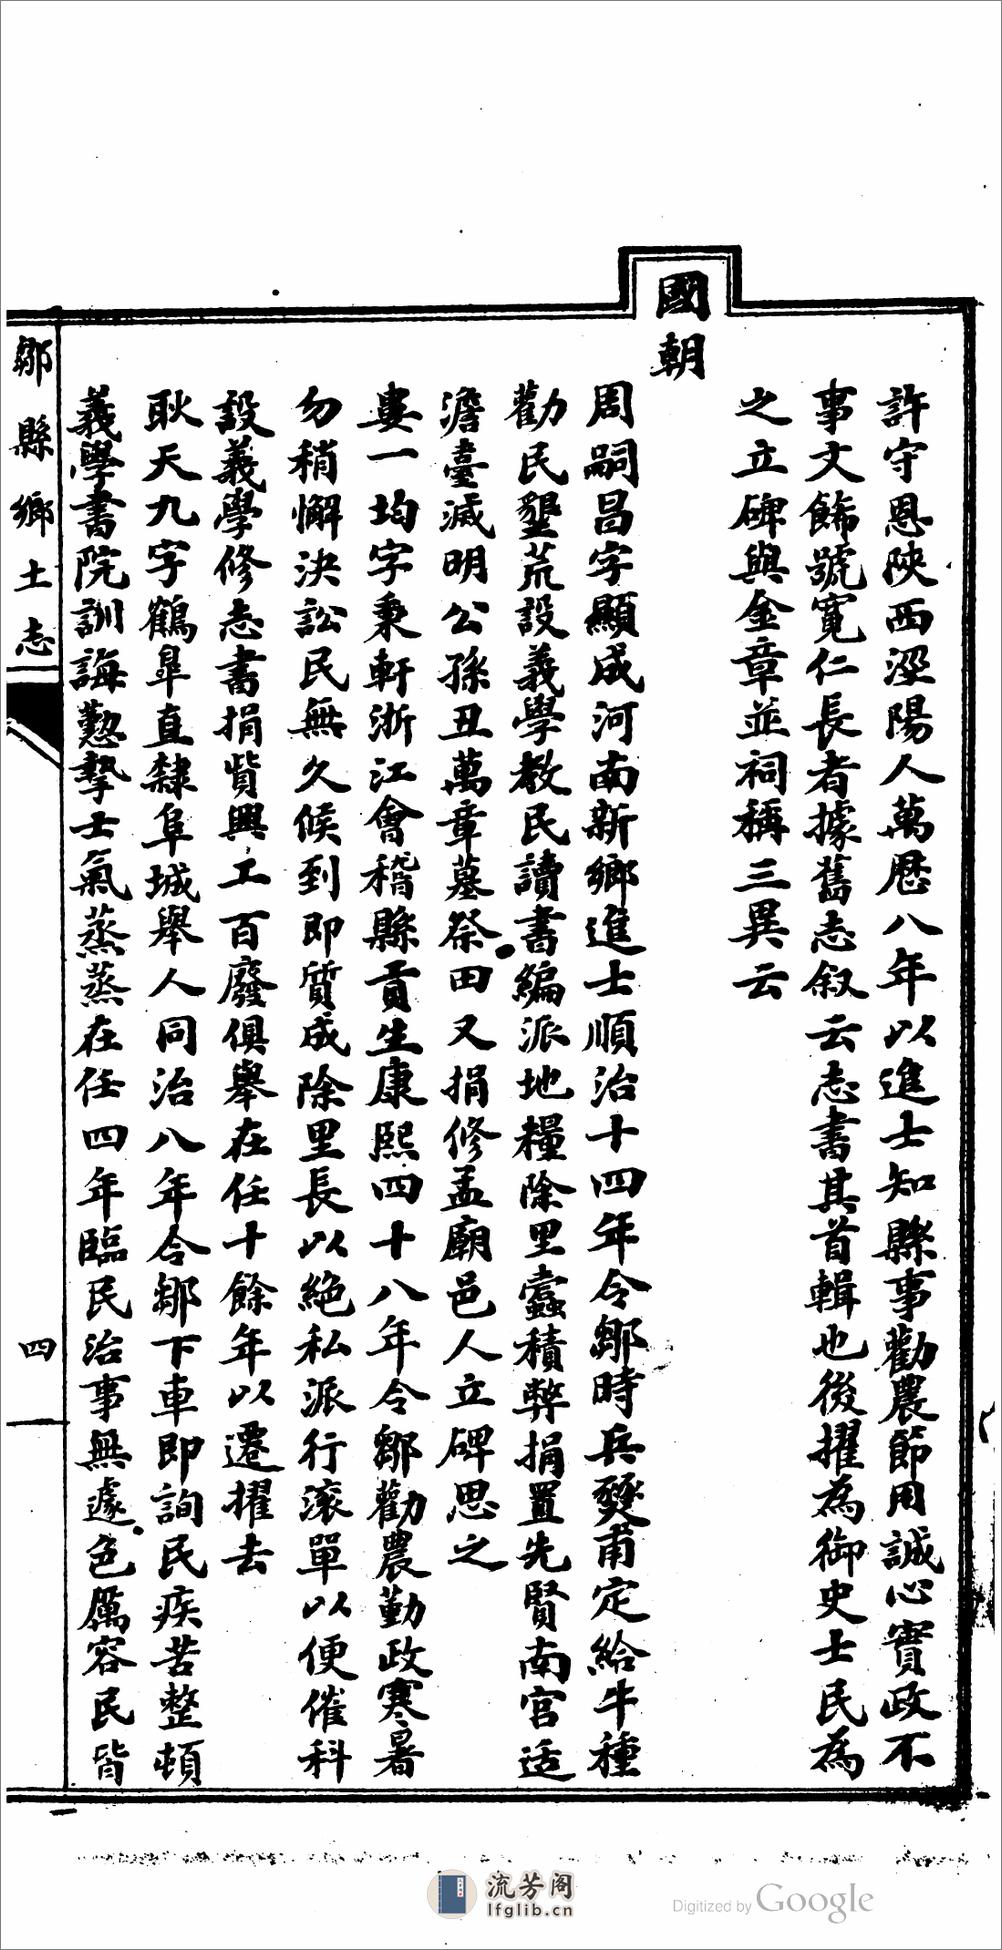 許守恩陝西涇陽人萬曆八年以進士知縣事勸農節用誠心實政不
事文飾號寬仁長者據舊志叙云志書其首輯也後擢為御史士民為
之立碑與金章並祠稱三異云
國朝
周嗣昌字顯成河南新鄉進士順治十四年令鄒時兵燹甫定給牛種
勸民墾荒設義學教民讀書編派地糧除里蠹積弊捐置先賢南宮适
澹臺滅明公孫丑萬章墓祭田又捐修孟廟邑人立碑思之
婁一均字秉軒浙江會稽縣貢生康熙四十八年令鄒勸農勤政寒暑
勿稍懈決訟民無久候到即質成除里長以絕私派行滾單以便催科
設義學修志書捐貲興工百廢俱舉在任十餘年以遷擢去
耿天九字鶴皐直隸阜城舉人同治八年令鄒下車即詢民疾苦整頓
義學書院訓誨懃摯士氣蒸蒸在任四年臨民治事無遽色厲容民皆
鄒縣鄉土志
四
流芳阁
lfglib.cn
Digitized by Google